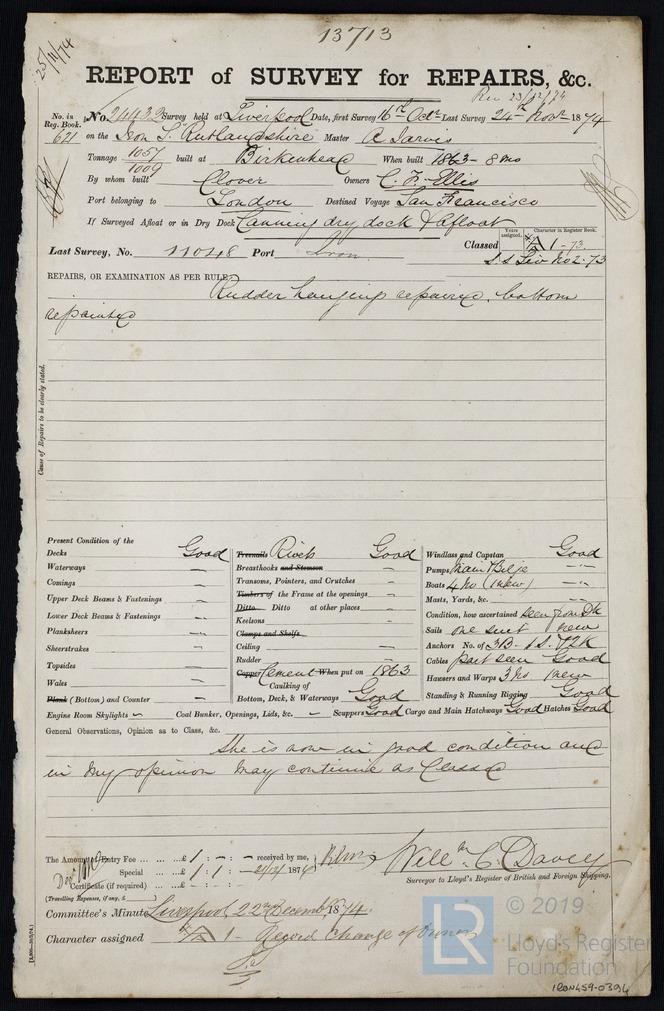 13713
25/11/74
REPORT of SURVEY for REPAIRS, &c.
Rec 23/12/74
No. in Reg. Book. No. 24433 Survey held at Liverpool Date, first Survey 16th Octr Last Survey 24th Novr 1874
621 on the Iron S. "Rutlandshire" Master A Jarvis
Tonnage 1057 / 1009 built at Birkenhead When built 1863 - 8 mo
By whom built Clover Owners C. F. Ellis
Port belonging to London Destined Voyage San Francisco
If Surveyed Afloat or in Dry Dock Canning dry dock & afloat
Years assigned. Character in Register Book.
Last Survey, No. 11048 Port Iron Classed A 1 - 73.
S.S Liv No 2-73
REPAIRS, OR EXAMINATION AS PER RULE,
Rudder hanging repaired, bottom
repainted
Cause of Repairs to be clearly stated.
Present Condition of the
Decks Good
Waterways
Comings
Upper Deck Beams & Fastenings
Lower Deck Beams & Fastenings
Planksheers
Sheerstrakes
Topsides
Wales
Plank (Bottom) and Counter
Engine Room Skylights
Treenails Rivets Good
Breasthooks and Stemson
Transoms, Pointers, and Crutches
Timbers of the Frame at the openings
Ditto Ditto at other places
Keelsons
Clamps and Shelfs
Ceiling
Rudder
Copper Cement When put on 1863
Caulking of
Bottom, Deck, & Waterways Good
Coal Bunker, Openings, Lids, &c.
Scuppers Good Cargo and Main Hatchways Good Hatches Good
Windlass and Capstan Good
Pumps Main & Bilge
Boats 4 No (1 new)
Masts, Yards, &c.
Condition, how ascertained Seen from Dk
Sails one suit new
Anchors No. of 3B. 1S. & 2K
Cables part seen Good
Hausers and Warps 3 No 1 new
Standing & Running Rigging Good
General Observations, Opinion as to Class, &c.
She is now in good condition and
in my opinion may continue as Classed
The Amount of Entry Fee ... ... ...£ 1 : - : - received by me,
Special ... ...£ 1 : 1 : - 21/12/1874
Certificate (if required) ...£ : :
(Travelling Expenses, if any, £
Willm C. Davey
Surveyor to Lloyd's Register of British and Foreign Shipping.
Committee's Minute Liverpool 22nd December 1874.
Character assigned A 1 - Record Change of Owners
© 2019
LR
Lloyd's Register
Foundation
IRON459-0394